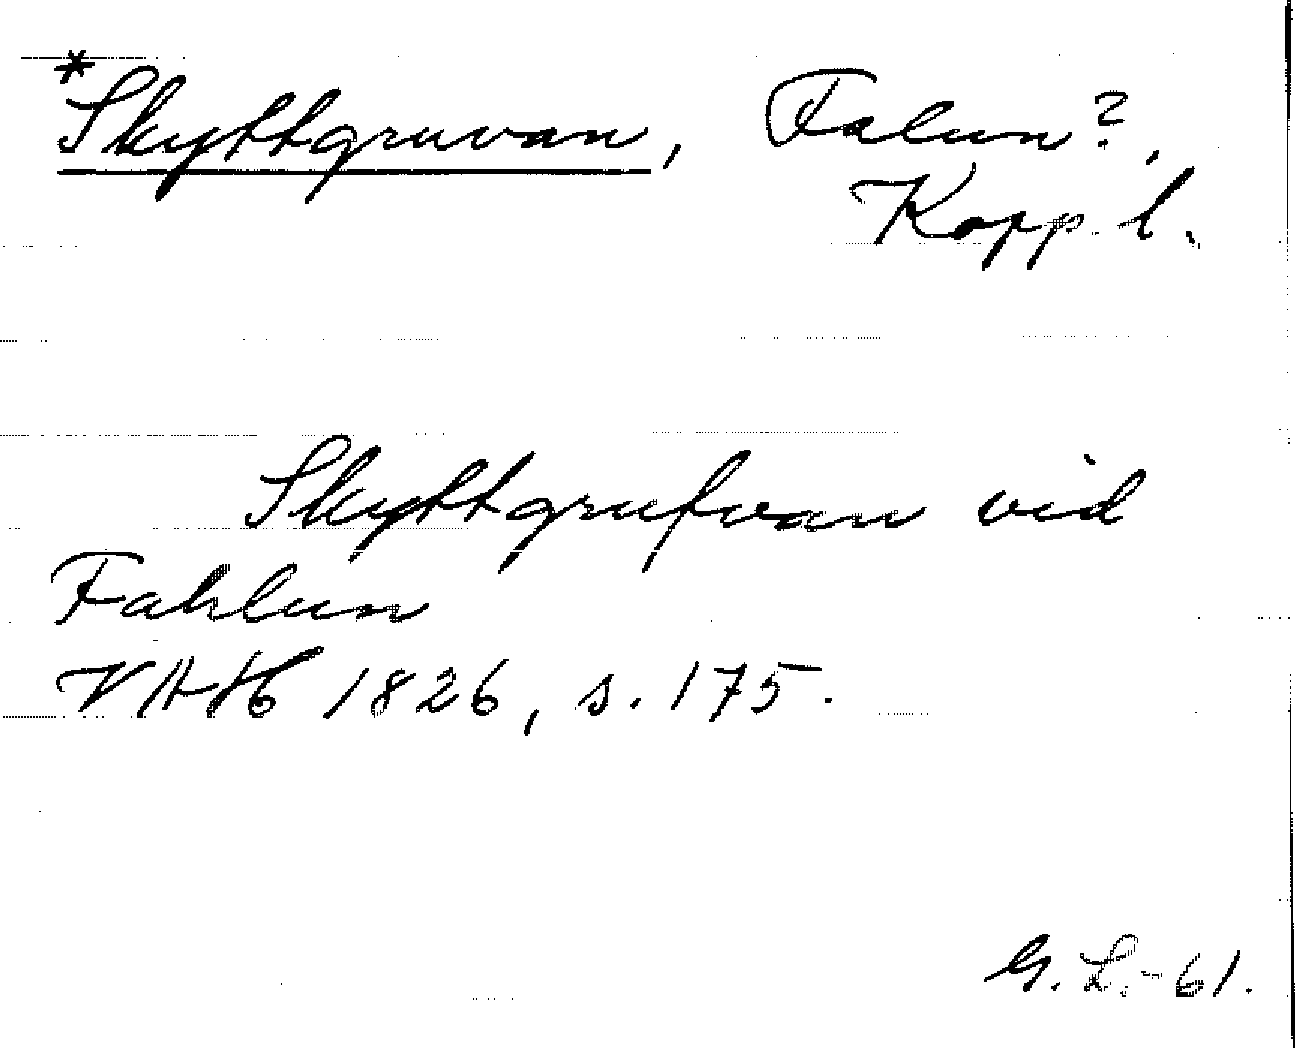 *Skyttgruvan, Falun?,
Kopp. l.
Skyttgrufvan vid
Fahlun
VAH 1826, s. 175.
G. L. -61.